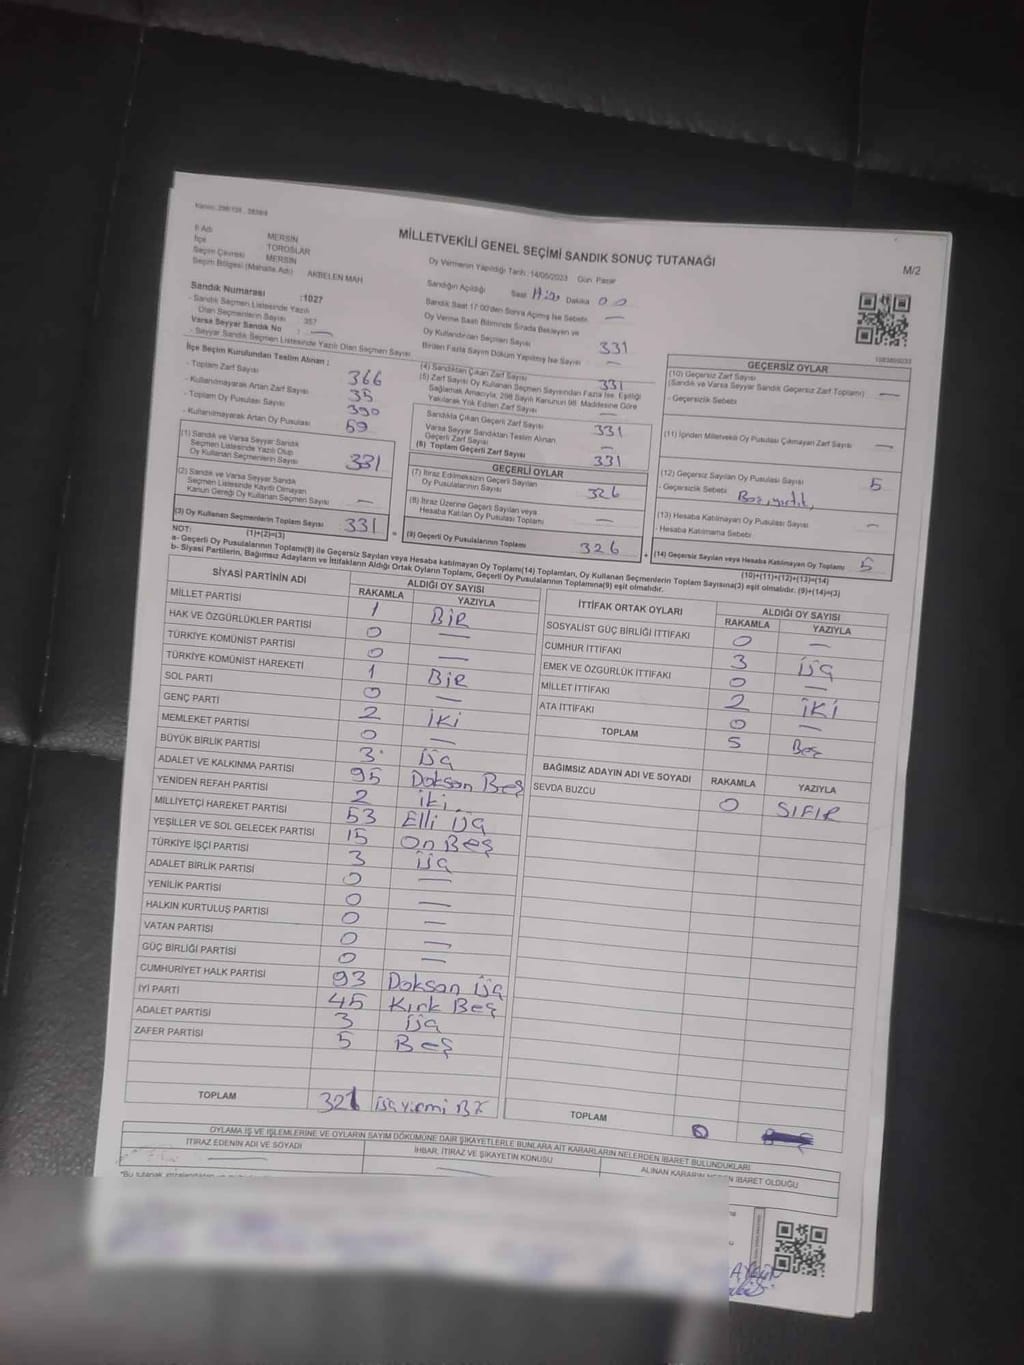 MİLLETVEKİLİ GENEL SEÇİMİ SANDIK SONUÇ TUTANAĞI
M/2
İl Adı MERSİN
İlçe TOROSLAR
Seçim Çevresi MERSİN
Seçim Bölgesi (Mahalle Adı) AKBELEN MAH
Sandık Numarası :1027
- Sandık Seçmen Listesinde Yazılı
Olan Seçmenlerin Sayısı 357
Varsa Seyyar Sandık No : —
- Seyyar Sandık Seçmen Listesinde Yazılı Olan Seçmen Sayısı
Oy Vermenin Yapıldığı Tarih :14/05/2023 Gün Pazar
Sandığın Açıldığı Saat Dakika 00
Sandık Saat 17:00'den Sonra Açılmış İse Sebebi —
Oy Verme Saati Bitiminde Sırada Bekleyen ve
Oy Kullandırılan Seçmen Sayısı 331
Birden Fazla Sayım Döküm Yapılmış İse Sayısı —
İlçe Seçim Kurulundan Teslim Alınan ;
- Toplam Zarf Sayısı 366
- Kullanılmayarak Artan Zarf Sayısı 35
- Toplam Oy Pusulası Sayısı 390
- Kullanılmayarak Artan Oy Pusulası 59
(1) Sandık ve Varsa Seyyar Sandık
Seçmen Listesinde Yazılı Olup
Oy Kullanan Seçmenlerin Sayısı 331
(2) Sandık ve Varsa Seyyar Sandık
Seçmen Listesinde Kayıtlı Olmayan
Kanun Gereği Oy Kullanan Seçmen Sayısı —
(3) Oy Kullanan Seçmenlerin Toplam Sayısı 331
(1)+(2)=(3)
(4) Sandıktan Çıkan Zarf Sayısı 331
(5) Zarf Sayısı Oy Kullanan Seçmen Sayısından Fazla İse, Eşitliği
Sağlamak Amacıyla, 298 Sayılı Kanunun 98. Maddesine Göre
Yakılarak Yok Edilen Zarf Sayısı —
Sandıkta Çıkan Geçerli Zarf Sayısı 331
Varsa Seyyar Sandıktan Teslim Alınan
Geçerli Zarf Sayısı —
(6) Toplam Geçerli Zarf Sayısı 331
GEÇERLİ OYLAR
(7) İtiraz Edilmeksizin Geçerli Sayılan
Oy Pusulalarının Sayısı 326
(8) İtiraz Üzerine Geçerli Sayılan veya
Hesaba Katılan Oy Pusulası Toplamı —
(9) Geçerli Oy Pusulalarının Toplamı 326
GEÇERSİZ OYLAR
(10) Geçersiz Zarf Sayısı
(Sandık ve Varsa Seyyar Sandık Geçersiz Zarf Toplamı) —
- Geçersizlik Sebebi
(11) İçinden Milletvekili Oy Pusulası Çıkmayan Zarf Sayısı —
(12) Geçersiz Sayılan Oy Pusulası Sayısı 5
- Geçersizlik Sebebi
(13) Hesaba Katılmayan Oy Pusulası Sayısı —
- Hesaba Katılmama Sebebi
(14) Geçersiz Sayılan veya Hesaba Katılmayan Oy Toplamı 5
(10)+(11)+(12)+(13)=(14)
NOT:
a- Geçerli Oy Pusulaları Toplamı(9) ile Geçersiz Sayılan veya Hesaba katılmayan Oy Toplamı(14) Toplamları, Oy Kullanan Seçmenlerin Toplam Sayısına(3) eşit olmalıdır. (9)+(14)=(3)
b- Siyasi Partilerin, Bağımsız Adayların ve İttifakların Aldığı Ortak Oyların Toplamı, Geçerli Oy Pusulalarının Toplamına(9) eşit olmalıdır.
SİYASİ PARTİNİN ADI ALDIĞI OY SAYISI
RAKAMLA YAZIYLA
MİLLET PARTİSİ 1 BİR
HAK VE ÖZGÜRLÜKLER PARTİSİ 0 —
TÜRKİYE KOMÜNİST PARTİSİ 0 —
TÜRKİYE KOMÜNİST HAREKETİ 1 BİR
SOL PARTİ 0 —
GENÇ PARTİ 2 İKİ
MEMLEKET PARTİSİ 0 —
BÜYÜK BİRLİK PARTİSİ 3 ÜÇ
ADALET VE KALKINMA PARTİSİ 95 Doksan Beş
YENİDEN REFAH PARTİSİ 2 iki
MİLLİYETÇİ HAREKET PARTİSİ 53 Elli ÜÇ
YEŞİLLER VE SOL GELECEK PARTİSİ 15 On Beş
TÜRKİYE İŞÇİ PARTİSİ 3 ÜÇ
ADALET BİRLİK PARTİSİ 0 —
YENİLİK PARTİSİ 0 —
HALKIN KURTULUŞ PARTİSİ 0 —
VATAN PARTİSİ 0 —
GÜÇ BİRLİĞİ PARTİSİ 0 —
CUMHURİYET HALK PARTİSİ 93 Doksan ÜÇ
İYİ PARTİ 45 Kırk Beş
ADALET PARTİSİ 3 ÜÇ
ZAFER PARTİSİ 5 Beş
TOPLAM 321
İTTİFAK ORTAK OYLARI ALDIĞI OY SAYISI
RAKAMLA YAZIYLA
SOSYALİST GÜÇ BİRLİĞİ İTTİFAKI 0 —
CUMHUR İTTİFAKI 3 ÜÇ
EMEK VE ÖZGÜRLÜK İTTİFAKI 0 —
MİLLET İTTİFAKI 2 İKİ
ATA İTTİFAKI 0 —
TOPLAM 5 Beş
BAĞIMSIZ ADAYIN ADI VE SOYADI RAKAMLA YAZIYLA
SEVDA BUZCU 0 SIFIR
TOPLAM 0
OYLAMA İŞ VE İŞLEMLERİNE VE OYLARIN SAYIM DÖKÜMÜNE DAİR ŞİKAYETLERLE BUNLARA AİT KARARLARIN NELERDEN İBARET BULUNDUKLARI
İTİRAZ EDENİN ADI VE SOYADI İHBAR, İTİRAZ VE ŞİKAYETİN KONUSU ALINAN KARARIN NEDEN İBARET OLDUĞU